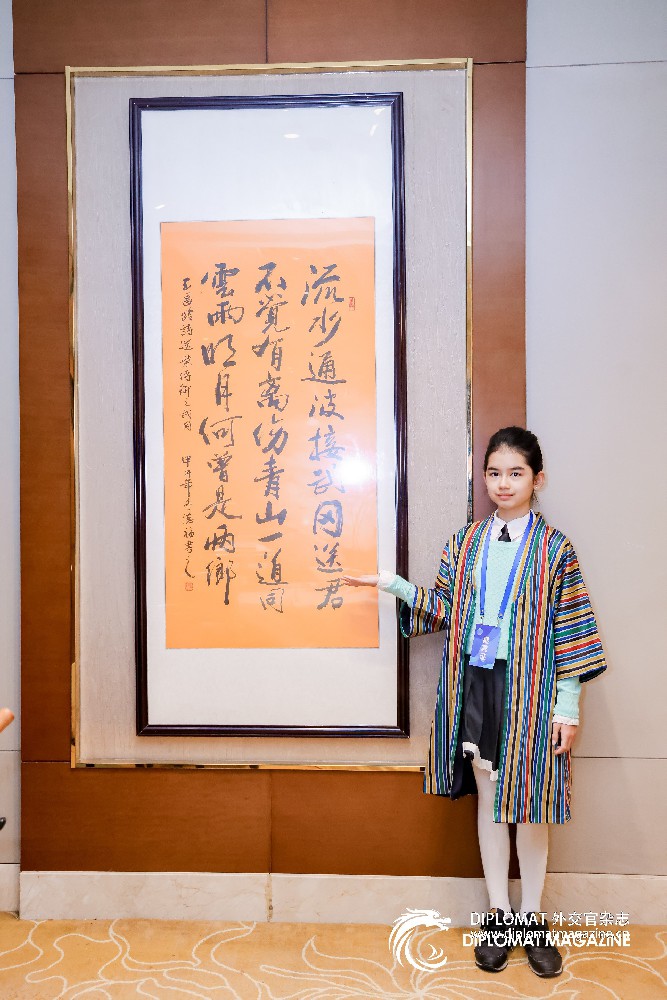 流水通波接武岡送君
不覺有離傷青山一道同
雲雨明月何曾是兩鄉
王昌齡詩送柴侍御之武岡 甲午年冬 德福書之
DIPLOMAT 外交官杂志
www.diplomatmagazine.cn
DIPLOMAT MAGAZINE